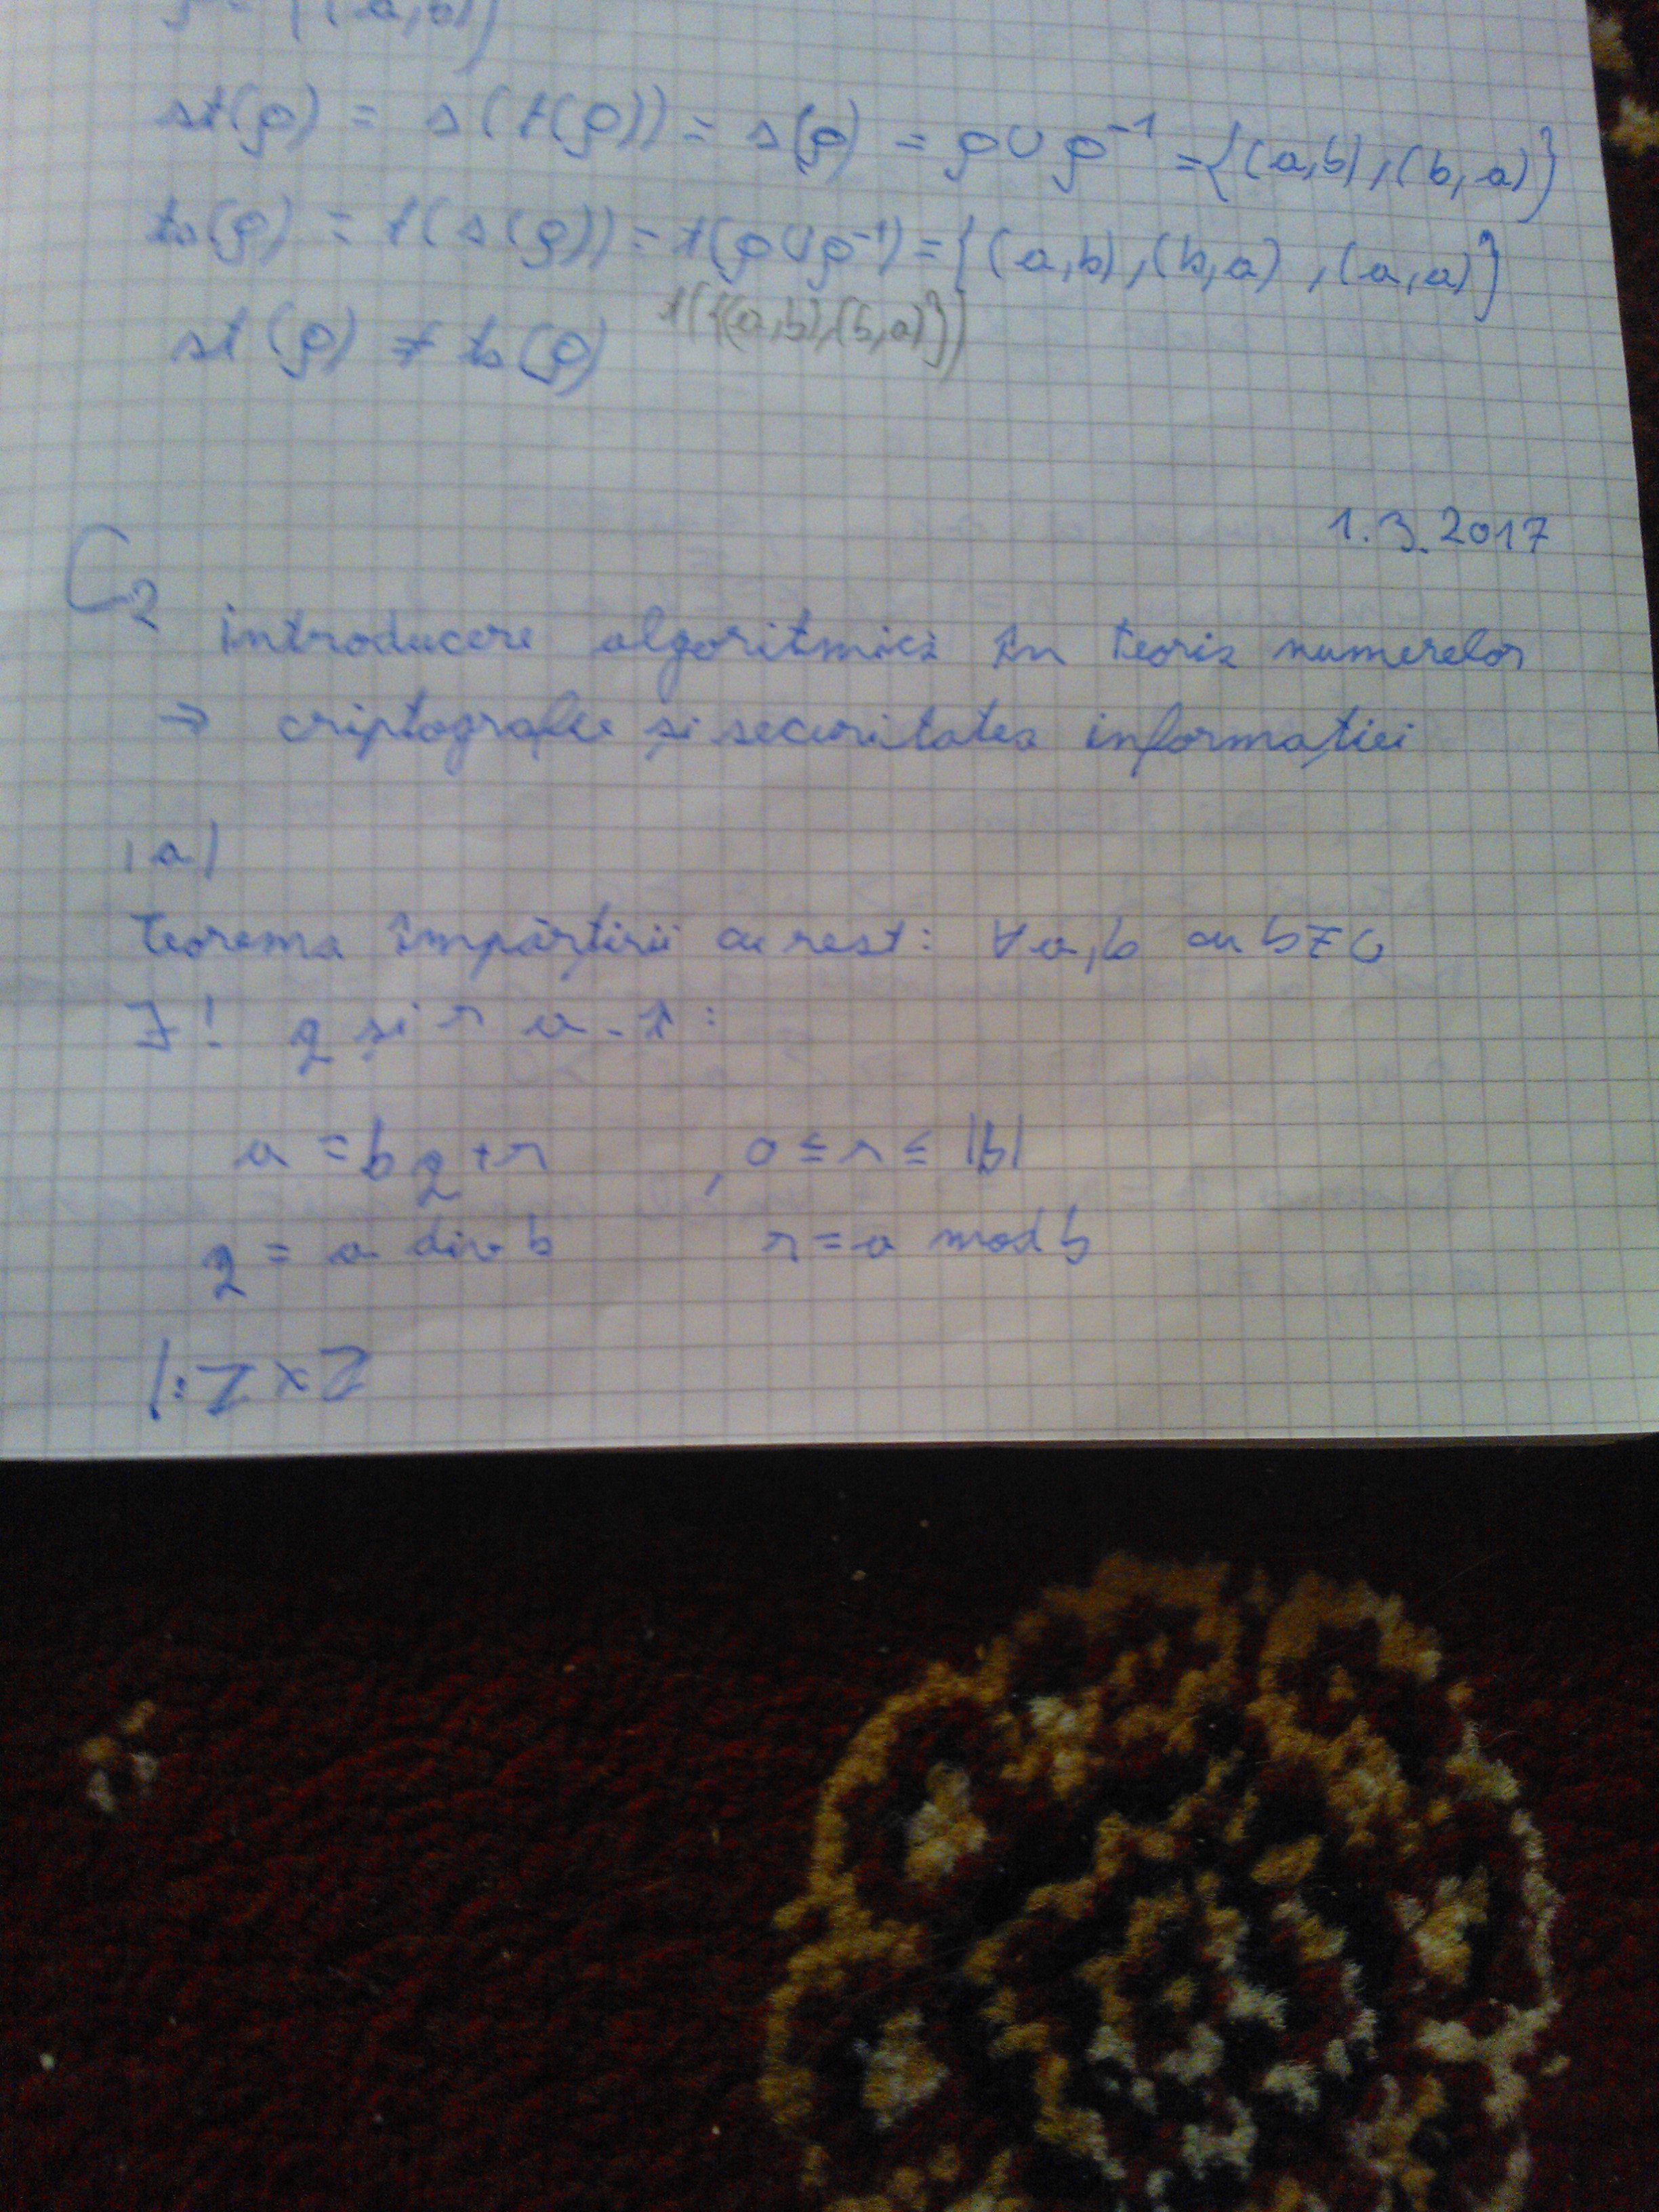 ρ = {(a,b)}
st(ρ) = s(t(ρ)) = s(ρ) = ρ∪ρ⁻¹ = {(a,b),(b,a)}
ts(ρ) = t(s(ρ)) = t(ρ∪ρ⁻¹) = {(a,b),(b,a),(a,a)}
t({(a,b),(b,a)})
st(ρ) ≠ ts(ρ)
1.3.2017
C2
introducere algoritmică în teoria numerelor
⇒ criptografie și securitatea informației
|a|
Teorema împărțirii cu rest: ∀a,b cu b≠0
∃! q și r a.î:
a = bq+r , 0 ≤ r ≤ |b|
q = a div b r = a mod b
|: Z×Z